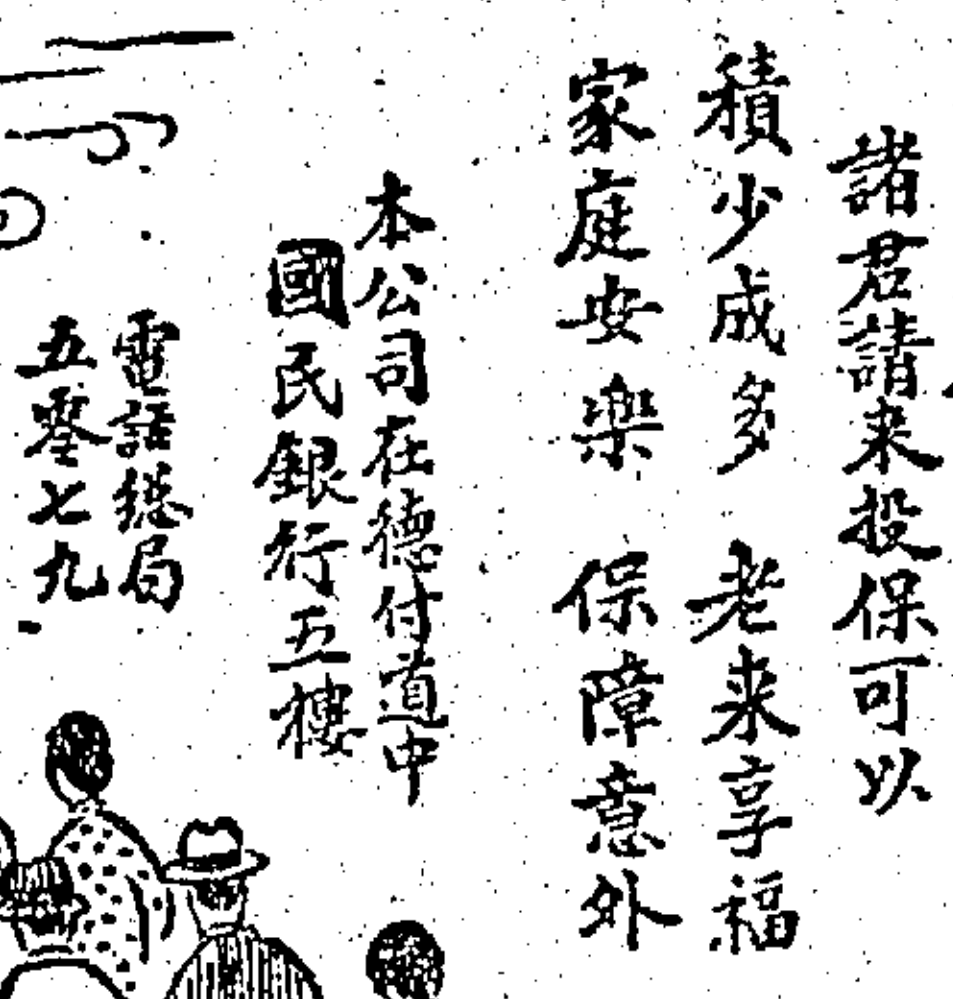 諸君請来投保可以
積少成多 老来享福
家庭安樂 保障意外
本公司在德付道中
國民銀行五樓
電話總局
五零七九